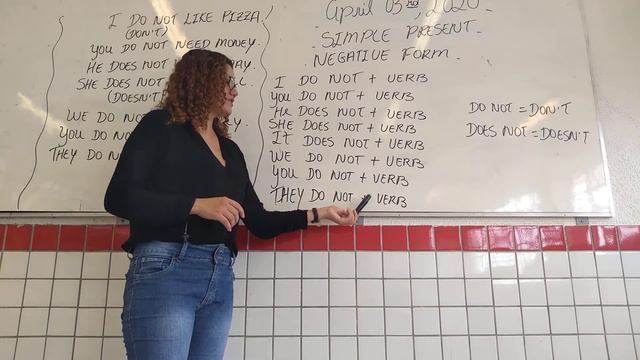 I DO NOT LIKE PIZZA.
(DON'T)
YOU DO NOT NEED MONEY.
HE DOES NOT
SHE DOES NOT
(DOESN'T
WE DO NO
YOU DO NO
THEY DO NO
April 03rd, 2020
SIMPLE PRESENT
NEGATIVE FORM
I DO NOT + VERB
YOU DO NOT + VERB
HE DOES NOT + VERB
SHE DOES NOT + VERB
IT DOES NOT + VERB
WE DO NOT + VERB
YOU DO NOT + VERB
THEY DO NOT + VERB
DO NOT = DON'T
DOES NOT = DOESN'T